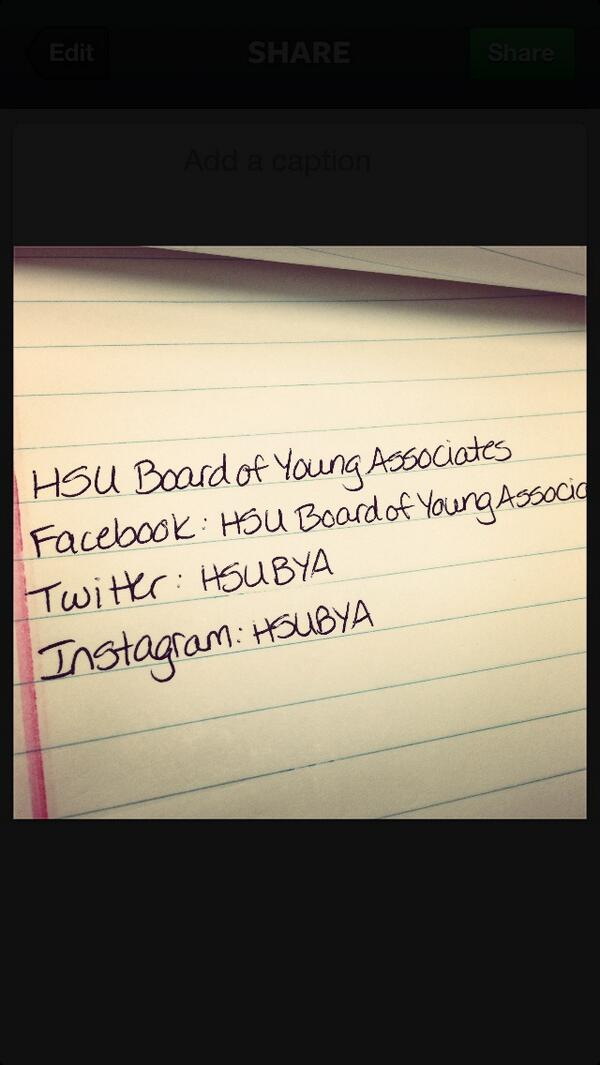 Edit SHARE Share
Add a caption
HSU Board of Young Associates
Facebook: HSU Board of Young Associa
Twitter: HSUBYA
Instagram: HSUBYA